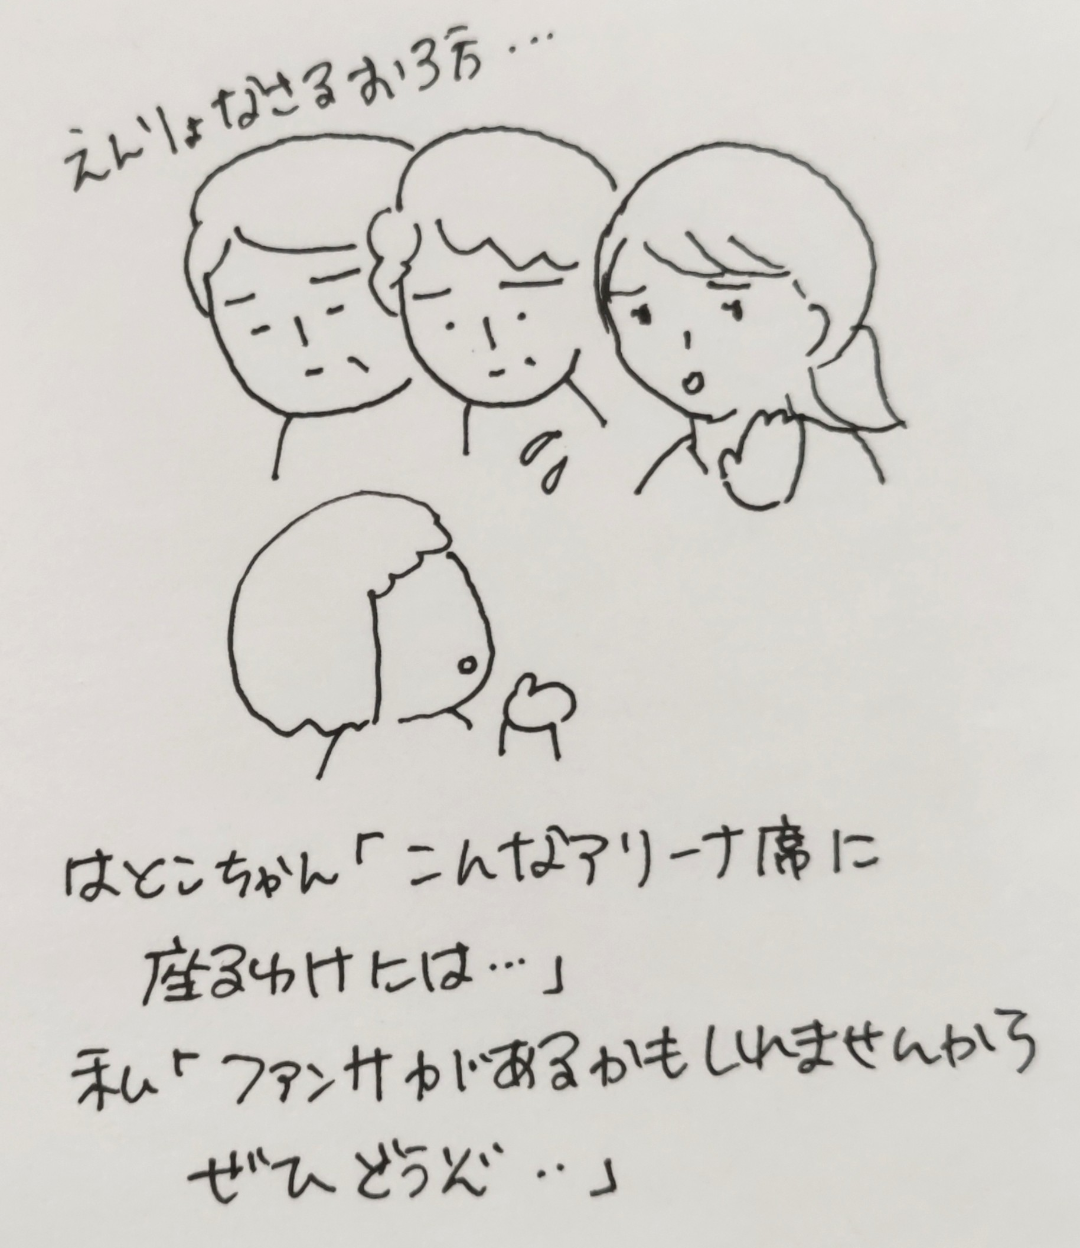 えんりょなさるお3方…
はとこちゃん「こんなアリーナ席に
座るわけには…」
私「ファンサがあるかもしれませんから
ぜひどうぞ‥」